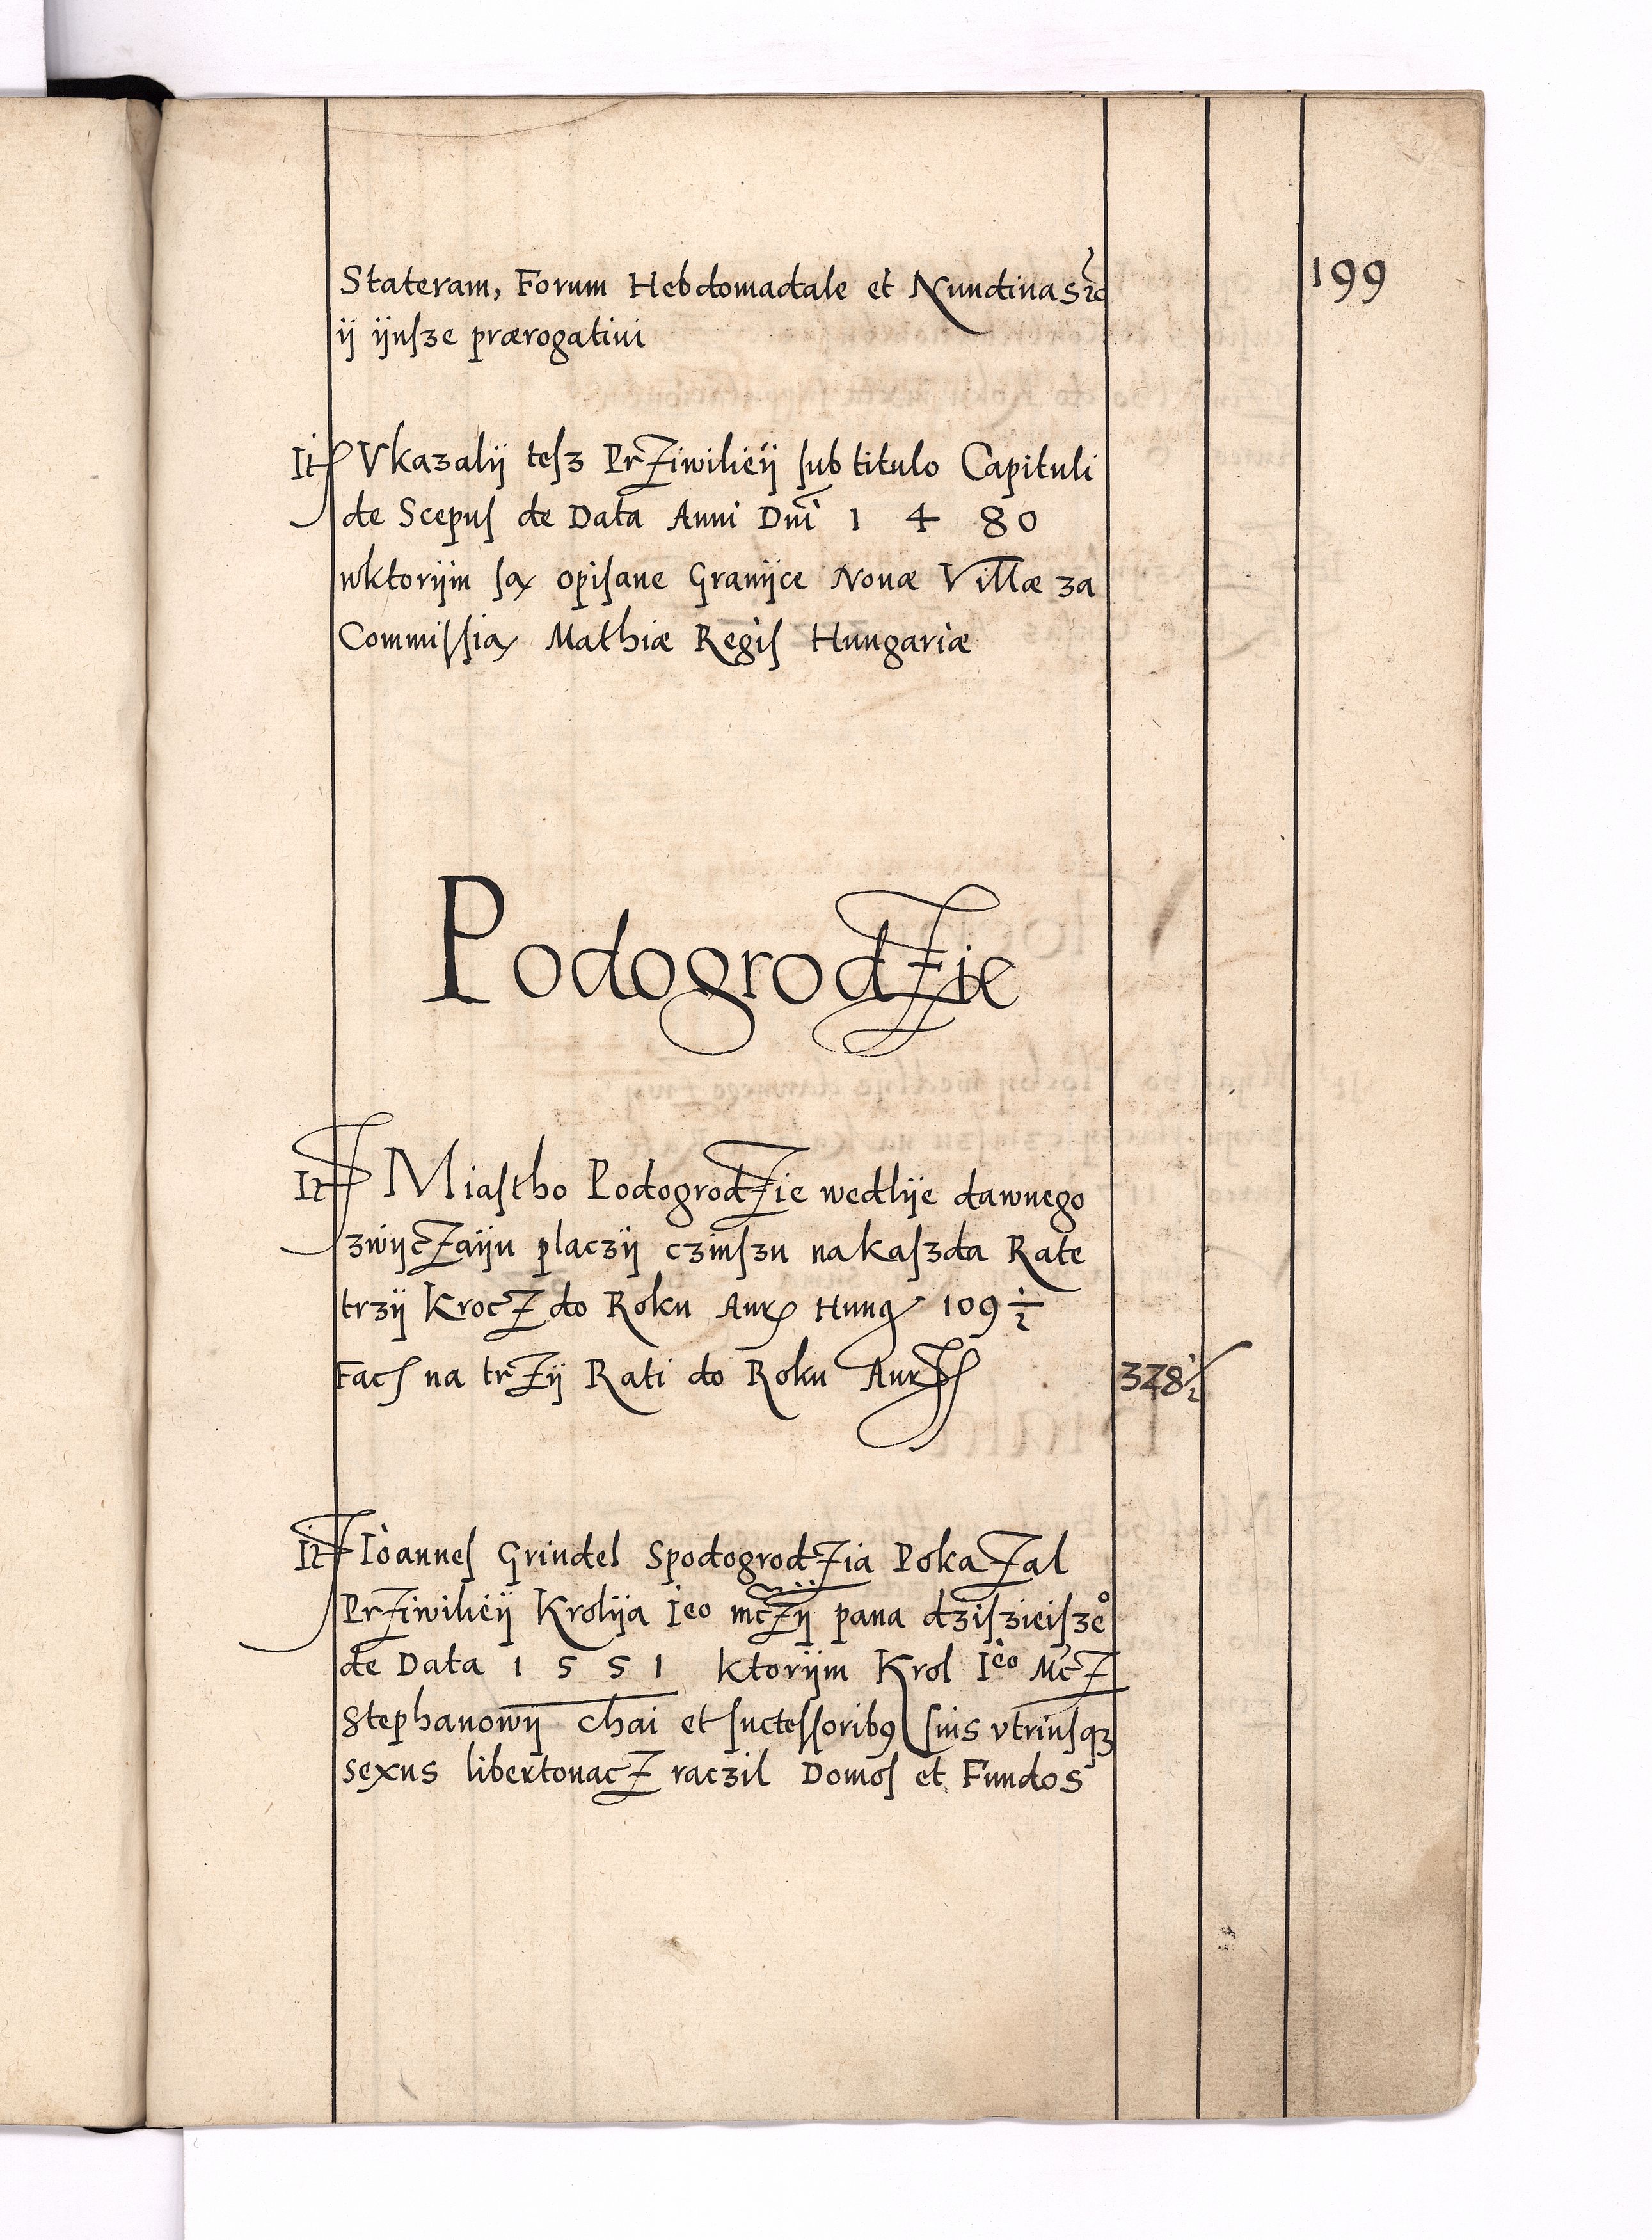 199
Stateram, Forum Hebdomadale et Nundinas &c
ij ijnſze prærogatiui
Itm Vkazalij teſz Prziwilieij ſub titulo Capituli
de Scepuſ de Data Anni Dni 1 4 80
wktorijm ſą opiſane Granijce Nouæ Villæ za
Commiſſią Mathiæ Regiſ Hungariæ
Podogrodzie
Itm Miaſtho Podogrodzie wedlije dawnego
zwijczaiju placzij czinſzu nakaſzda Rate
trzij krocz do Roku Aur Hung 109 1/2
Facſ na trzij Rati do Roku Aur 328 1/2
Itm Ioanneſ Grindel Spodogrodzia Pokazal
Prziwilieij Krolija Ieo mczij pana dziſzieiſzeo
de Data 1 5 5 1 ktorijm Krol Ieo Mcz
Stephanowij Chai et ſucteſſoribꝫ ſuis vtriuſqꝫ
sexus libertouacz raczil Domoſ et Fundos